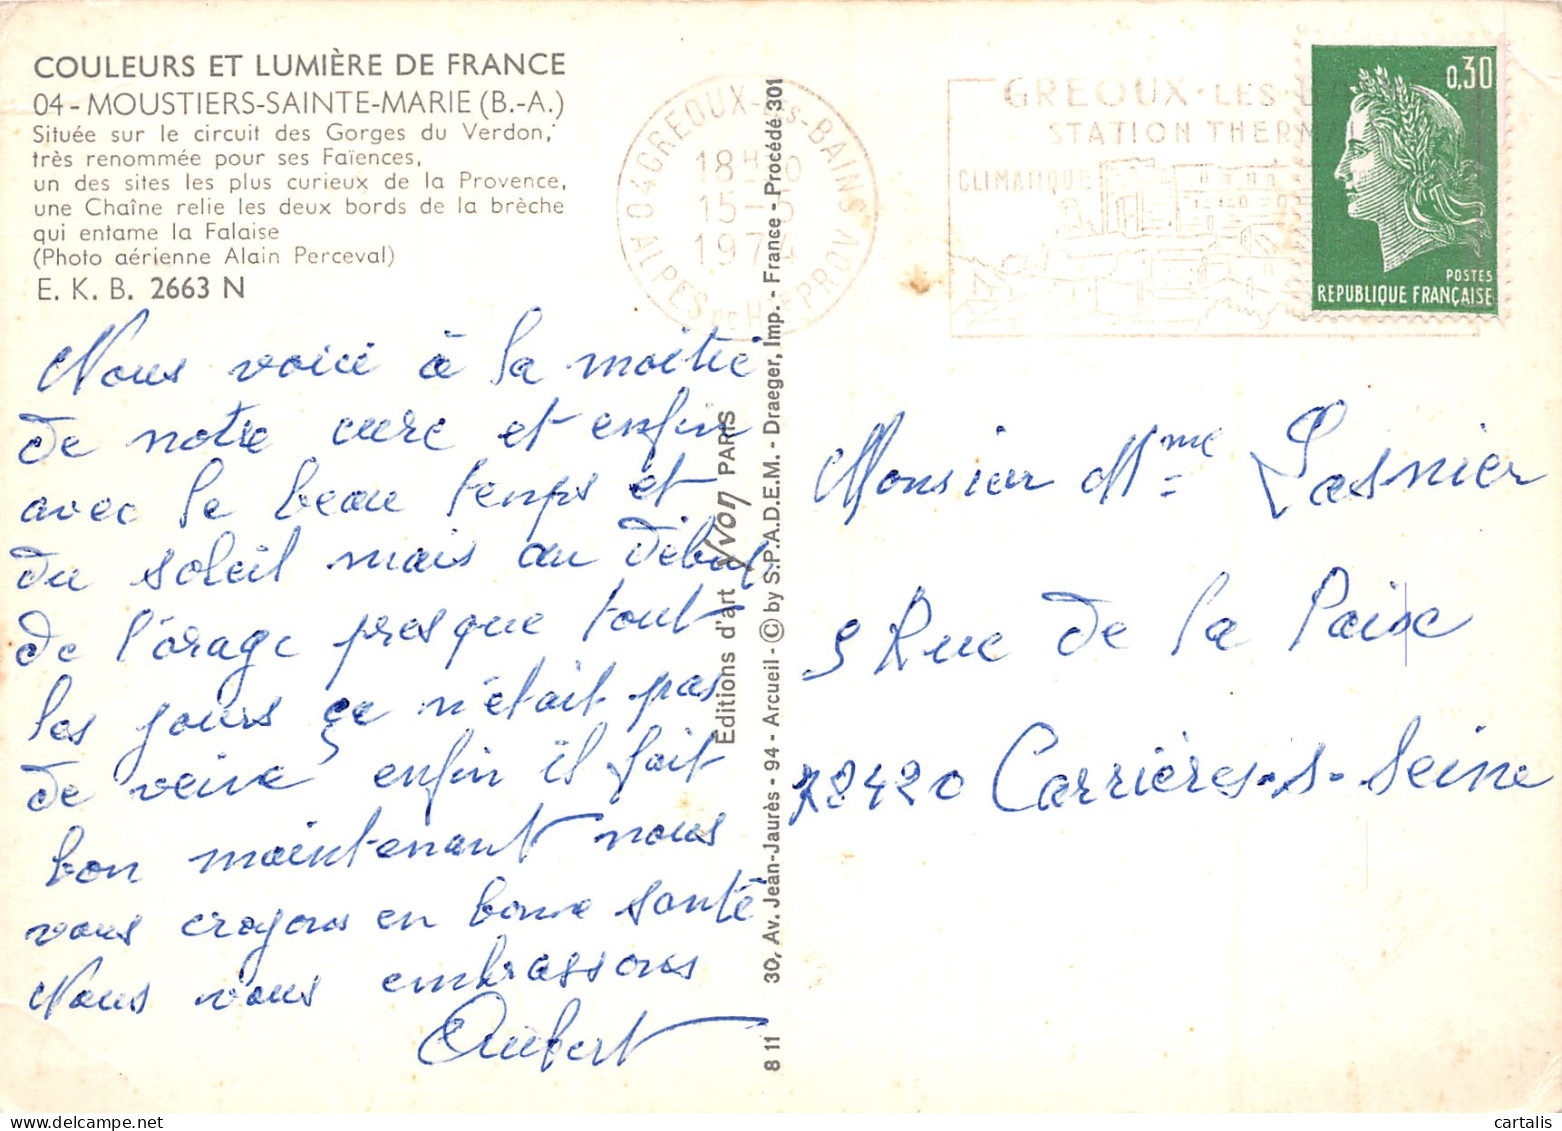 COULEURS ET LUMIÈRE DE FRANCE
04-MOUSTIERS-SAINTE-MARIE (B.-A.)
Située sur le circuit des Gorges du Verdon,
très renommée pour ses Faïences,
un des sites les plus curieux de la Provence,
une Chaîne relie les deux bords de la brèche
qui entame la Falaise
(Photo aérienne Alain Perceval)
E. K. B. 2663 N
Nous voici à la moitié
de notre cure et enfin
avec le beau temps et
du soleil mais au début
de l'orage presque tout
les jours ce n'était pas
de veine enfin il fait
bon maintenant nous
vous croyons en bonne santé
Nous vous embrassons
Aubert
Éditions d'art Yvon PARIS
30, Av. Jean-Jaurès - 94 - Arcueil - © by S.P.A.D.E.M. - Draeger, Imp. - France - Procédé 301
8 11
04 GREOUX-les-BAINS
18H
15-5
1974
ALPES DE HTE PROV
GREOUX·LES
STATION THERMA
CLIMATIQUE
0,30
POSTES
REPUBLIQUE FRANÇAISE
Monsieur Mme Lasnier
5 Rue de la Paix
78420 Carrières-s-Seine
cartalis